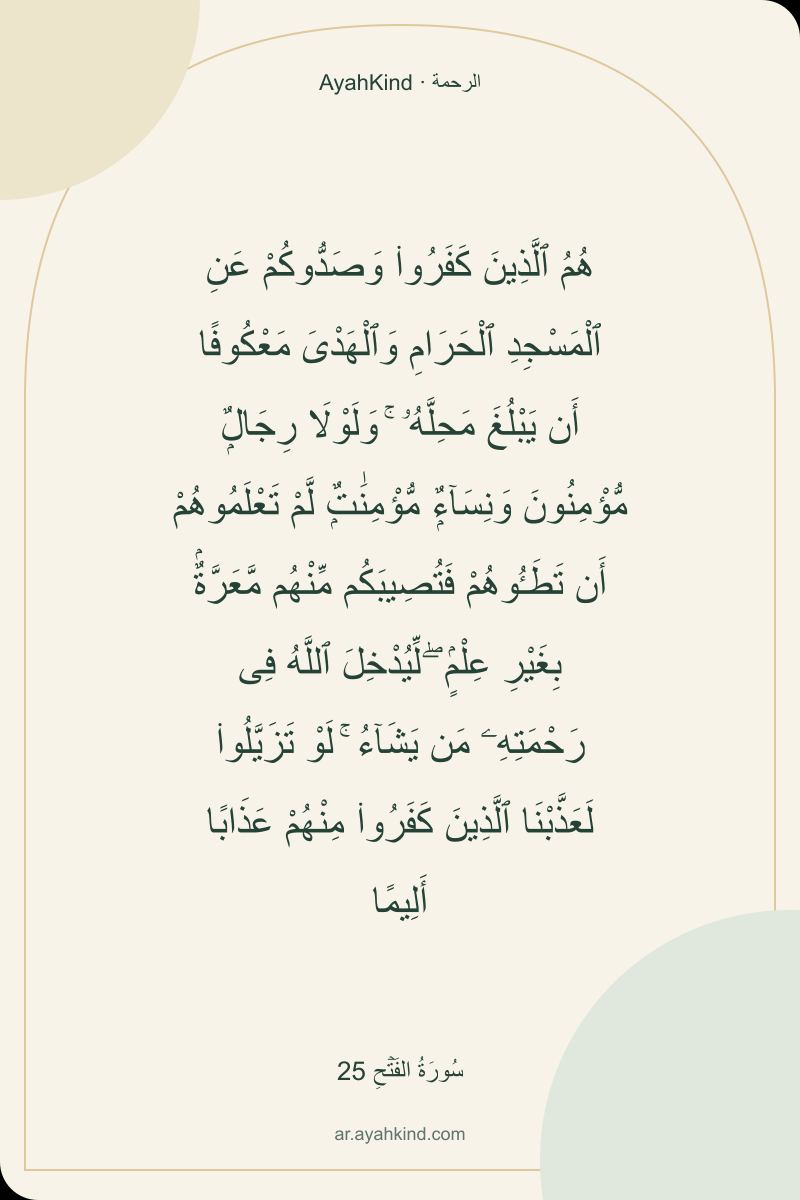 AyahKind · الرحمة
هُمُ ٱلَّذِينَ كَفَرُوا۟ وَصَدُّوكُمْ عَنِ
ٱلْمَسْجِدِ ٱلْحَرَامِ وَٱلْهَدْىَ مَعْكُوفًا
أَن يَبْلُغَ مَحِلَّهُۥ ۚ وَلَوْلَا رِجَالٌۭ
مُّؤْمِنُونَ وَنِسَآءٌۭ مُّؤْمِنَـٰتٌۭ لَّمْ تَعْلَمُوهُمْ
أَن تَطَـُٔوهُمْ فَتُصِيبَكُم مِّنْهُم مَّعَرَّةٌۢ
بِغَيْرِ عِلْمٍۢ ۖ لِّيُدْخِلَ ٱللَّهُ فِى
رَحْمَتِهِۦ مَن يَشَآءُ ۚ لَوْ تَزَيَّلُوا۟
لَعَذَّبْنَا ٱلَّذِينَ كَفَرُوا۟ مِنْهُمْ عَذَابًا
أَلِيمًا
سُورَةُ الفَتۡحِ 25
ar.ayahkind.com